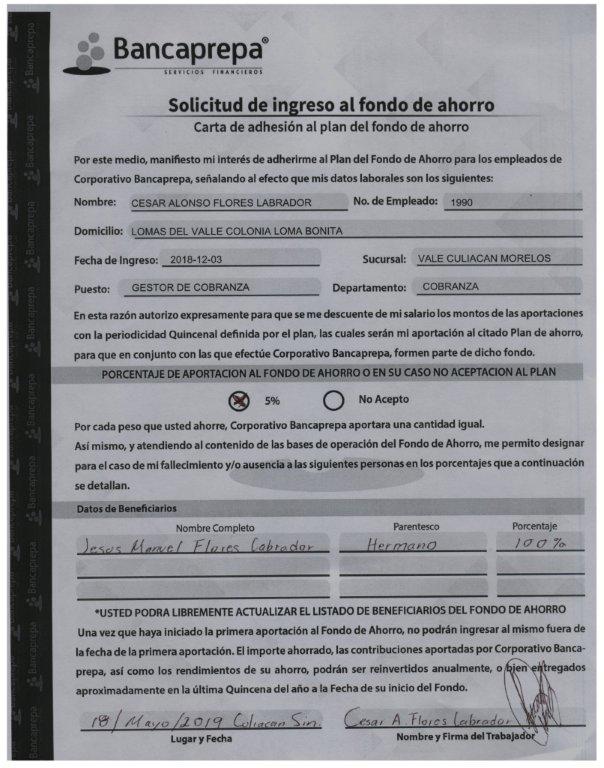 Bancaprepa®
SERVICIOS FINANCIEROS
Solicitud de ingreso al fondo de ahorro
Carta de adhesión al plan del fondo de ahorro
Por este medio, manifiesto mi interés de adherirme al Plan del Fondo de Ahorro para los empleados de
Corporativo Bancaprepa, señalando al efecto que mis datos laborales son los siguientes:
Nombre: CESAR ALONSO FLORES LABRADOR No. de Empleado: 1990
Domicilio: LOMAS DEL VALLE COLONIA LOMA BONITA
Fecha de Ingreso: 2018-12-03 Sucursal: VALE CULIACAN MORELOS
Puesto: GESTOR DE COBRANZA Departamento: COBRANZA
En esta razón autorizo expresamente para que se me descuente de mi salario los montos de las aportaciones
con la periodicidad Quincenal definida por el plan, las cuales serán mi aportación al citado Plan de ahorro,
para que en conjunto con las que efectúe Corporativo Bancaprepa, formen parte de dicho fondo.
PORCENTAJE DE APORTACION AL FONDO DE AHORRO O EN SU CASO NO ACEPTACION AL PLAN
5% No Acepto
Por cada peso que usted ahorre, Corporativo Bancaprepa aportara una cantidad igual.
Así mismo, y atendiendo al contenido de las bases de operación del Fondo de Ahorro, me permito designar
para el caso de mi fallecimiento y/o ausencia a las siguientes personas en los porcentajes que a continuación
se detallan.
Datos de Beneficiarios
Nombre Completo Parentesco Porcentaje
Jesus Manuel Flores Labrador Hermano 100%
*USTED PODRA LIBREMENTE ACTUALIZAR EL LISTADO DE BENEFICIARIOS DEL FONDO DE AHORRO
Una vez que haya iniciado la primera aportación al Fondo de Ahorro, no podrán ingresar al mismo fuera de
la fecha de la primera aportación. El importe ahorrado, las contribuciones aportadas por Corporativo Banca-
prepa, así como los rendimientos de su ahorro, podrán ser reinvertidos anualmente, o bien entregados
aproximadamente en la última Quincena del año a la Fecha de su inicio del Fondo.
18/Mayo/2019 Culiacan Sin. Cesar A. Flores Labrador
Lugar y Fecha Nombre y Firma del Trabajador